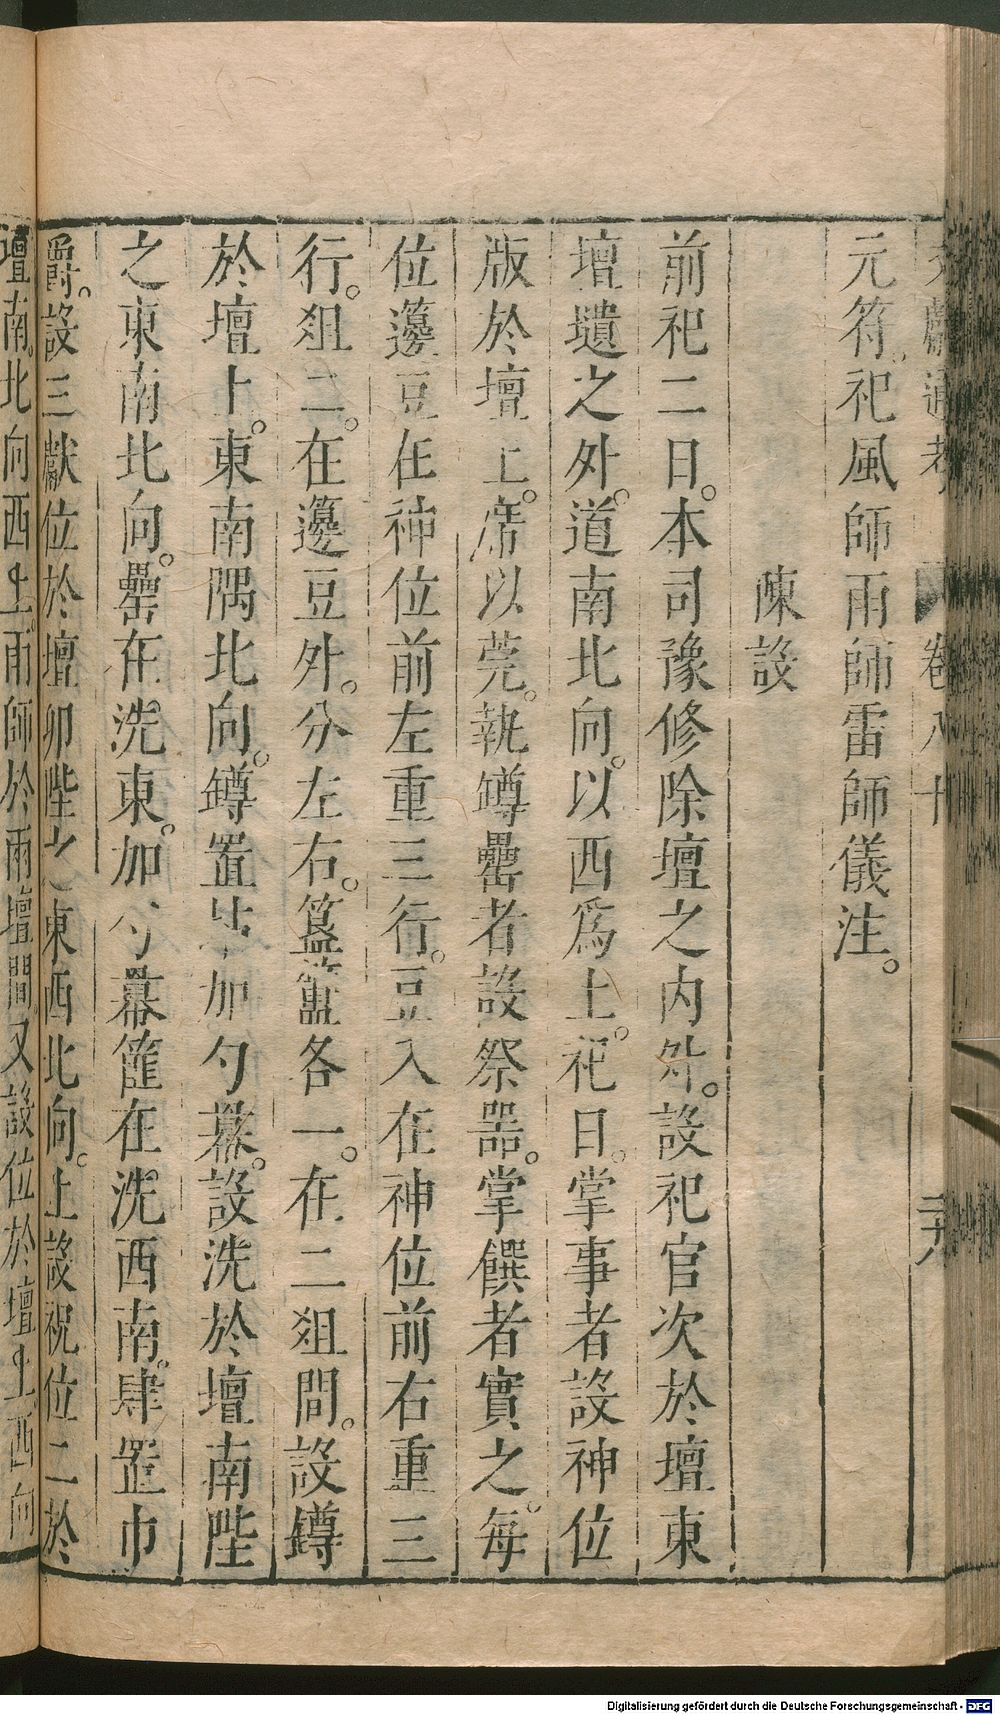 文獻通考 卷八十 二十八
元符。祀風師雨師雷師儀注。
陳設
前祀二日。本司豫修除壇之内外。設祀官次於壇東
壇壝之外。道南北向。以西爲上。祀日。掌事者設神位
版於壇上。席以莞。執罇罍者設祭器。掌饌者實之。每
位籩豆在神位前左重三行。豆入在神位前右重三
行。俎二。在籩豆外。分左右。簠簋各一。在二俎間。設罇
於壇上。東南隅北向。罇置坫加勺冪。設洗於壇南陛
之東南北向。罍在洗東。加勺冪篚在洗西南。肆置巾
爵。設三獻位於壇卯陛之東西北向。上設祝位二於
壇南。北向西上。雨師於雨壇間。又設位於壇上。西向
Digitalisierung gefördert durch die Deutsche Forschungsgemeinschaft - DFG